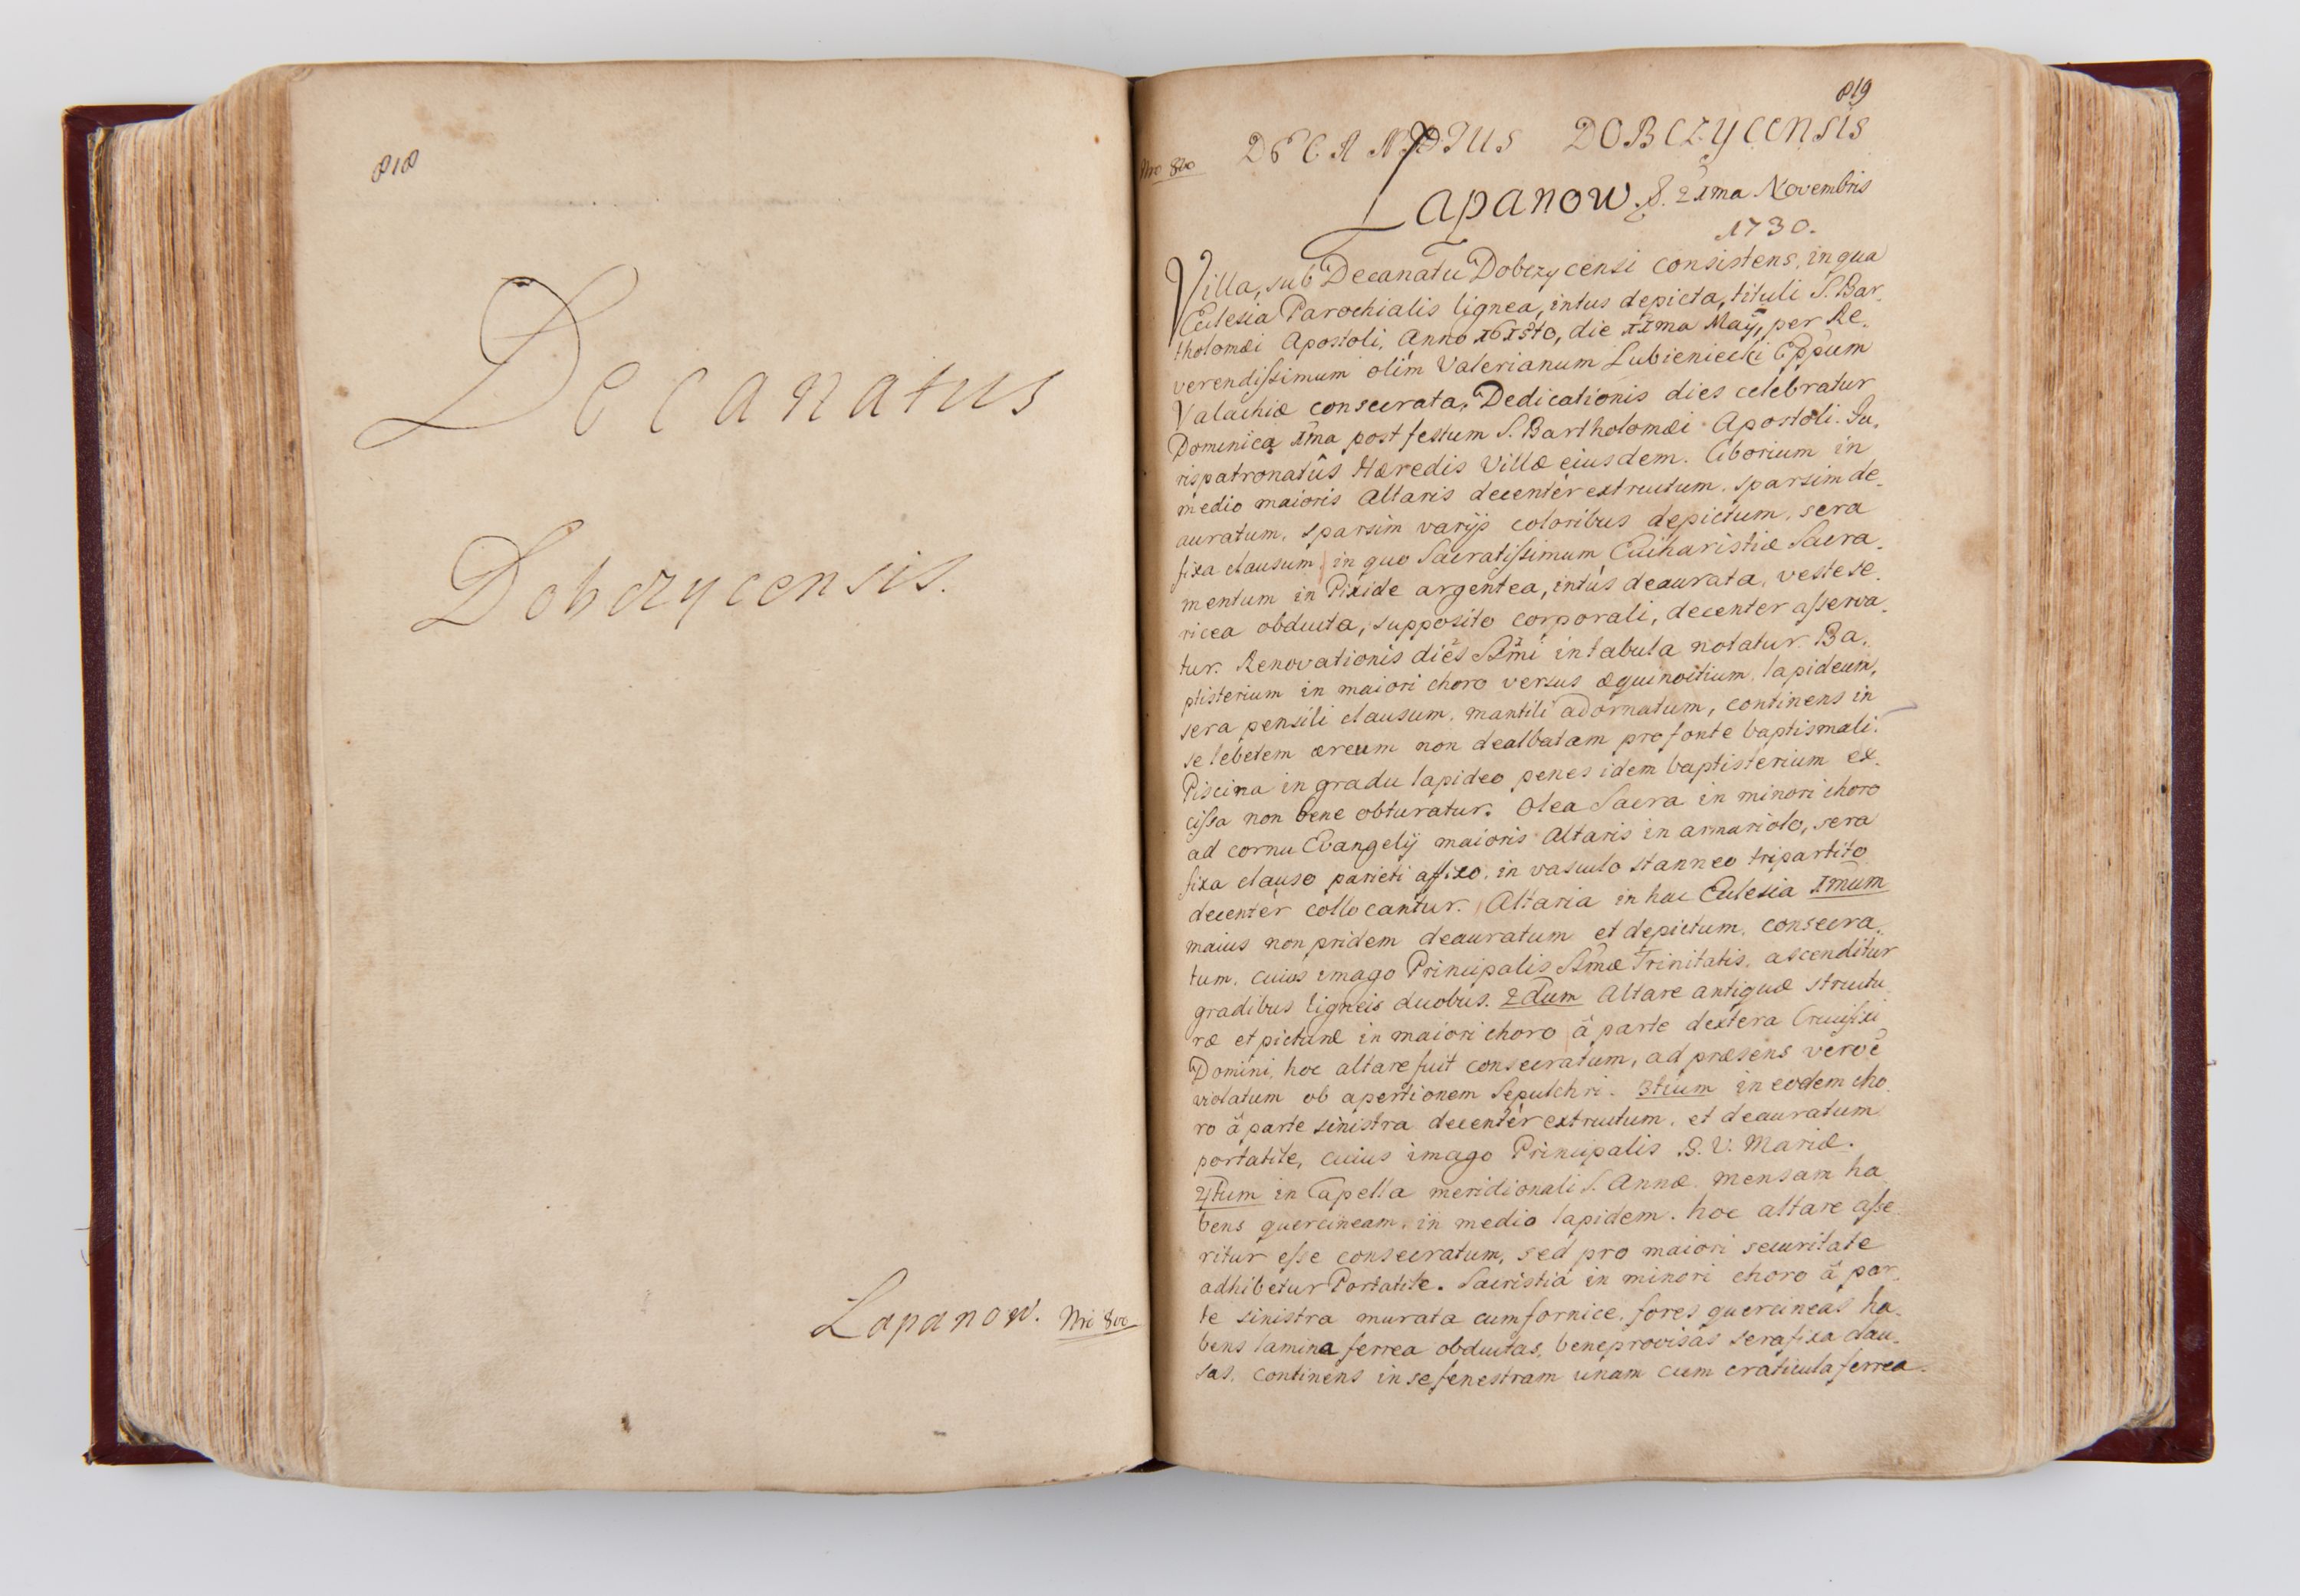 818
Decanatus
Dobczycensis.
Lapanow. Nro 800
819
Nro 800
DECANATUS DOBCZYCENSIS
Lapanow. 8. 21ma Novembris
1730.
Villa, sub Decanatu Dobczycensi consistens, in qua
Ecclesia Parochialis lignea, intus depicta, tituli S. Bar-
tholomæi Apostoli, Anno 1618to, die 11ma Maÿ, per Re-
verendissimum olim Valerianum Lubieniecki Eppum
Valachiæ consecrata, Dedicationis dies celebratur
Dominica 1ma post festum S. Bartholomæi Apostoli. Iu-
rispatronatûs Hæredis Villæ eiusdem. Ciborium in
medio maioris Altaris decentèr extructum, sparsim de-
auratum, sparsim varijs coloribus depictum, sera
fixa clausum, in quo Sacratissimum Eucharistiæ Sacra-
mentum in Pixide argentea, intùs deaurata, veste se-
ricea obducta, supposito corporali, decenter asserva-
tur. Renovationis dies SSmi in tabula notatur. Ba-
ptisterium in maiori choro versus æquinoctium, lapideum,
sera pensili clausum, mantili adornatum, continens in
se lebetem æreum non dealbatam pro fonte baptismali.
Piscina in gradu lapideo penes idem baptisterium ex-
cissa non bene obturatur. Olea Sacra in minori choro
ad cornu Evangelij maioris Altaris in armariolo, sera
fixa clauso parieti affixo, in vasculo stanneo tripartito
decentèr collocantur. Altaria in hac Ecclesia 1mum
maius non pridem deauratum et depictum, consecra-
tum, cuius imago Principalis SSmæ Trinitatis, ascenditur
gradibus ligneis duobus. 2dum Altare antiquæ structu-
ræ et picturæ in maiori choro à parte dextera Crucifixi
Domini, hoc altare fuit consecratum, ad præsens verò è
violatum ob apertionem Sepulchri. 3tium in eodem cho-
ro à parte sinistra decentèr extructum, et deauratum
portatile, cuius imago Principalis B. V. Mariæ.
4tum in Capella meridionali S. Annæ mensam ha-
bens quercineam, in medio lapidem. hoc altare asse-
ritur esse consecratum, sed pro maiori securitate
adhibetur Portatile. Sacristia in minori choro à par-
te sinistra murata cum fornice, fores quercineas ha-
bens lamina ferrea obductas, bene provisas sera fixa clau-
sas, continens in se fenestram unam cum craticula ferrea.